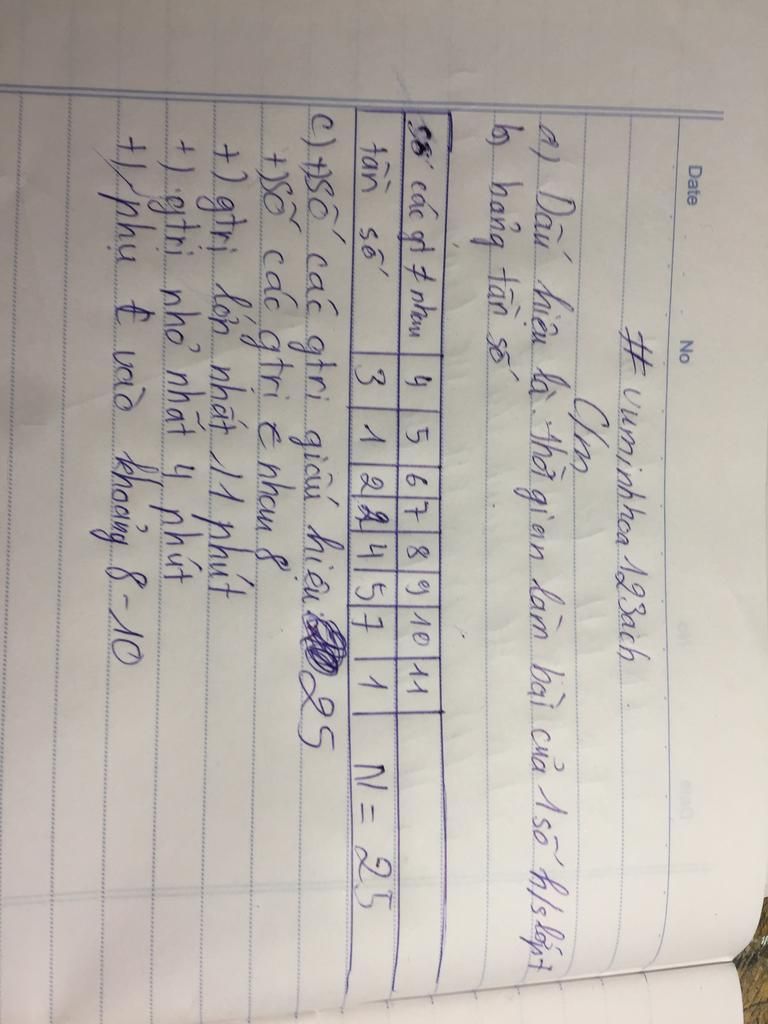 Date No
# vuminhhoa123ach
C/m
a) Dấu hiệu là thời gian làm bài của 1 số h/s lớp 7
b) bảng tần số
số các gt ≠ nhau 4 5 6 7 8 9 10 11
tần số 3 1 2 2 4 5 7 1 N = 25
c) +) Số các gtri giấu hiệu 25
+) Số các gtri ≠ nhau 8
+) gtri lớn nhất 11 phút
+) gtri nhỏ nhất 4 phút
+) phụ t vào khoảng 8-10